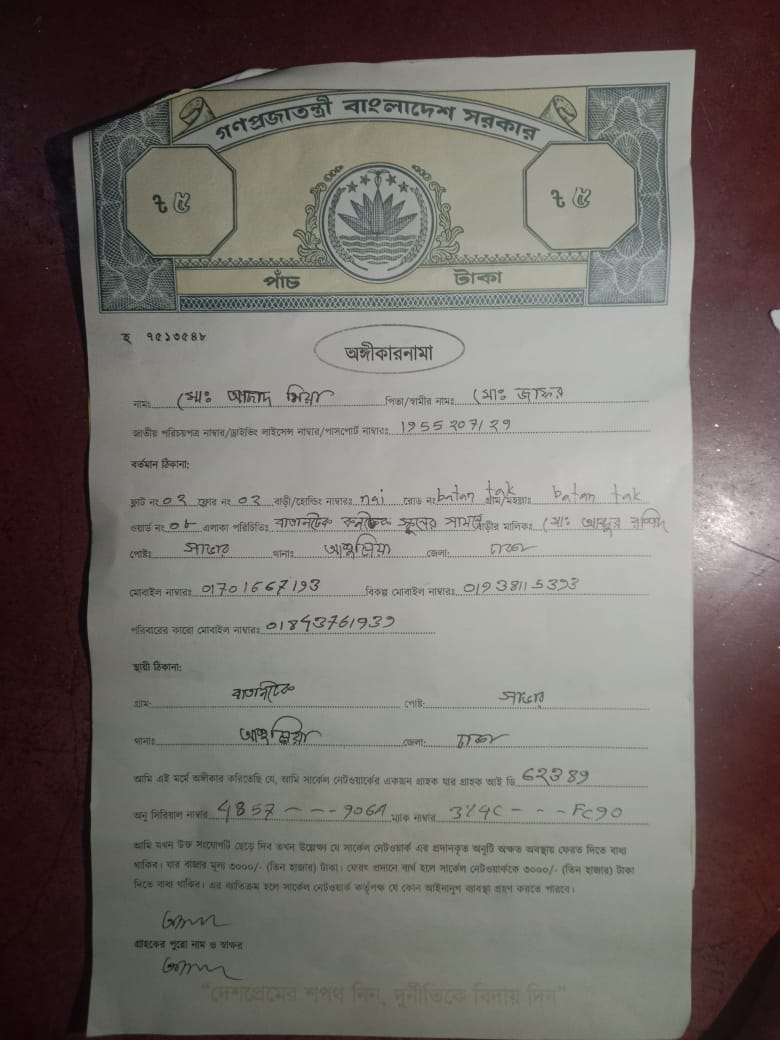 গণপ্রজাতন্ত্রী বাংলাদেশ সরকার
৳ ৫ ৳ ৫
পাঁচ টাকা
হ ৭৫১৩৫৪৮
অঙ্গীকারনামা
নামঃ মোঃ আজাদ মিয়া পিতা/স্বামীর নামঃ মোঃ জাফর
জাতীয় পরিচয়পত্র নাম্বার/ড্রাইভিং লাইসেন্স নাম্বার/পাসপোর্ট নাম্বারঃ 1955207129
বর্তমান ঠিকানা:
ফ্লাট নং ০২ ফ্লোর নং ০২ বাড়ী/হোল্ডিং নাম্বারঃ nai রোড নং batan tak গ্রাম/মহল্লাঃ batan tak
ওয়ার্ড নং ০৮ এলাকা পরিচিতিঃ বাতানটেক স্কুলের সামনে বাড়ীর মালিকঃ মোঃ আব্দুর রশিদ
পোষ্টঃ সাভার থানাঃ আশুলিয়া জেলা: ঢাকা
মোবাইল নাম্বারঃ 01701667193 বিকল্প মোবাইল নাম্বারঃ 01938115393
পরিবারের কারো মোবাইল নাম্বারঃ 01843761939
স্থায়ী ঠিকানা:
গ্রাম: বাতানটেক পোষ্ট: সাভার
থানাঃ আশুলিয়া জেলা: ঢাকা
আমি এই মর্মে অঙ্গীকার করিতেছি যে, আমি সার্কেল নেটওয়ার্কের একজন গ্রাহক যার গ্রাহক আই ডি 62389
অনু সিরিয়াল নাম্বার 4857 - - - 906A ম্যাক নাম্বার 324C - - - FC90
আমি যখন উক্ত সংযোগটি ছেড়ে দিব তখন উল্লেখ্য যে সার্কেল নেটওয়ার্ক এর প্রদানকৃত অনুটি অক্ষত অবস্থায় ফেরত দিতে বাধ্য
থাকিব। যার বাজার মূল্য ৩০০০/- (তিন হাজার) টাকা। ফেরৎ প্রদানে ব্যর্থ হলে সার্কেল নেটওয়ার্ককে ৩০০০/- (তিন হাজার) টাকা
দিতে বাধ্য থাকিব। এর ব্যতিক্রম হলে সার্কেল নেটওয়ার্ক কর্তৃপক্ষ যে কোন আইনানুগ ব্যবস্থা গ্রহণ করতে পারবে।
গ্রাহকের পুরো নাম ও স্বাক্ষর
"দেশপ্রেমের শপথ নিন, দুর্নীতিকে বিদায় দিন"